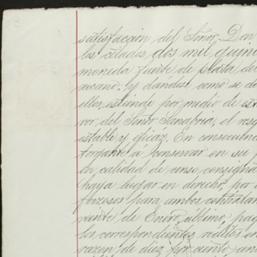 satisfaccion del Señor Don
los citados dos mil quin
moneda fuerte de plata del
y dandose como se da
ellos, estiende por medio de
vor del Señor Sanabria, el resg
estable y eficaz. En consecuenc
á consenar en su p
calidad de censo, consigna
haya lugar en derecho, por
para ambos contratan
veinte de Enero último, pag
los correspondientes réditos en
razon de diez por ciento, an